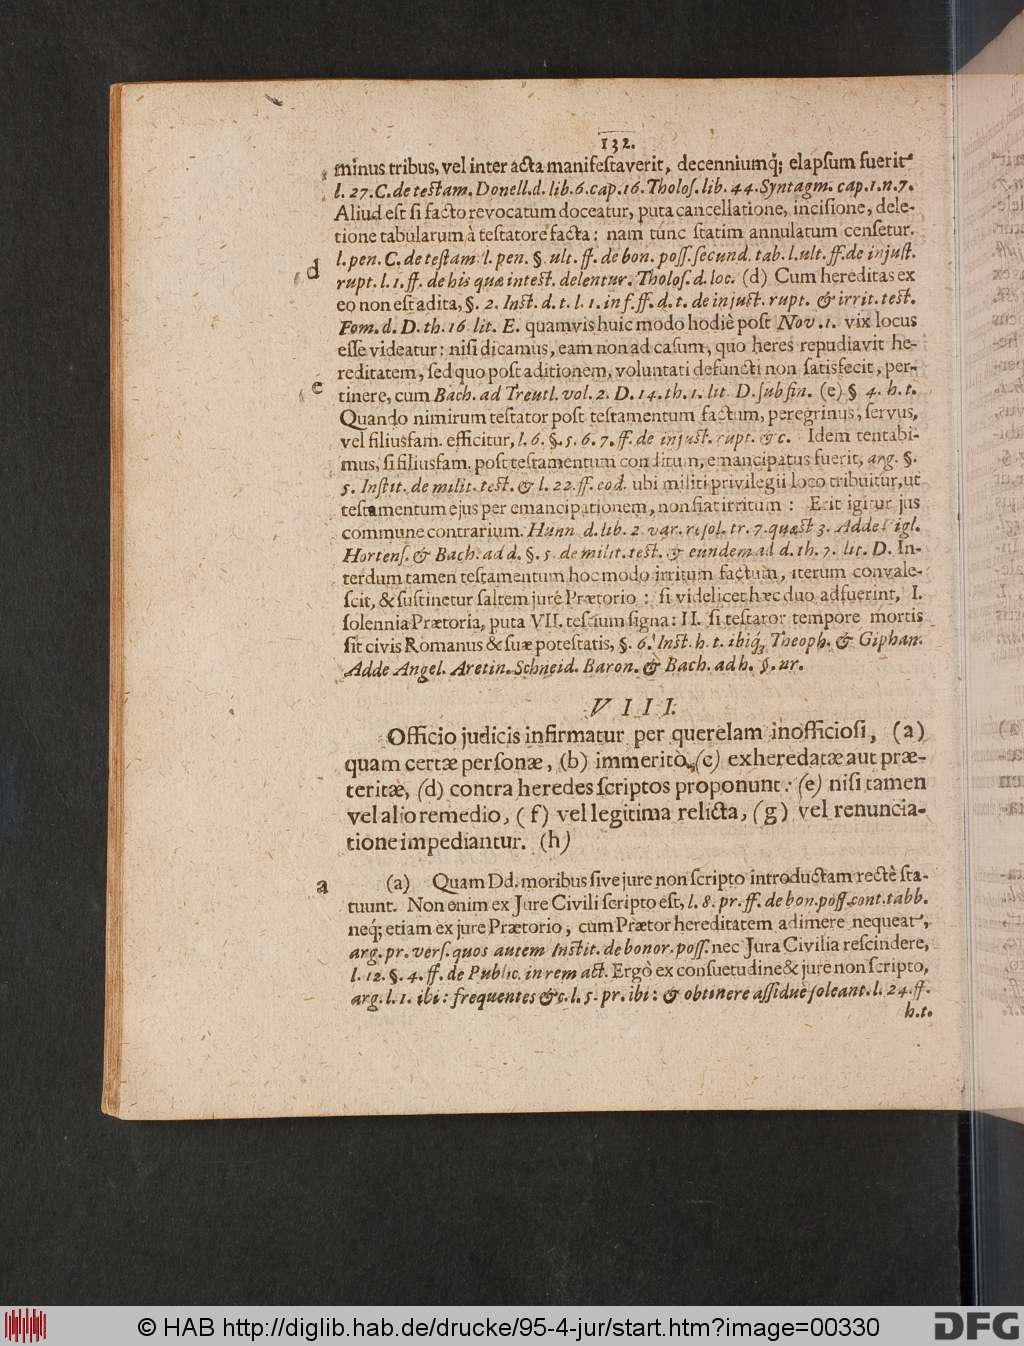 132.
minus tribus, vel inter acta manifestaverit, decenniumq; elapsum fuerit
l. 27. C. de testam. Donell. d. lib. 6. cap. 16. Tholos. lib. 44. Syntagm. cap. 1. n. 7.
Aliud est si facto revocatum doceatur, puta cancellatione, incisione, dele-
tione tabularum à testatore facta: nam tunc statim annulatum censetur.
l. pen. C. de testam. l. pen. §. ult. ff. de bon. poss. secund. tab. l. ult. ff. de injust.
d
rupt. l. 1. ff. de his quæ in test. delentur. Tholos. d. loc. (d) Cum hereditas ex
eo non est adita, §. 2. Inst. d. t. l. 1. in f. ff. d. t. de injust. rupt. & irrit. test.
Fom. d. D. th. 16. lit. E. quamvis huic modo hodiè post Nov. 1. vix locus
esse videatur: nisi dicamus, eam non ad casum, quo heres repudiavit he-
reditatem, sed quo post aditionem, voluntati defuncti non satisfecit, per-
e
tinere, cum Bach. ad Treutl. vol. 2. D. 14. th. 1. lit. D. sub fin. (e) § 4. h. t.
Quando nimirum testator post testamentum factum, peregrinus, servus,
vel filiusfam. efficitur, l. 6. §. 5. 6. 7. ff. de injust. rupt. &c. Idem tentabi-
mus, si filiusfam. post testamentum conditum, emancipatus fuerit, arg. §.
5. Instit. de milit. test. & l. 22. ff. eod. ubi militi privilegii loco tribuitur, ut
testamentum ejus per emancipationem, non fiat irritum: Erit igitur jus
commune contrarium. Hunn. d. lib. 2. var. resol. tr. 7. quæst 3. Adde Vigl.
Hortens. & Bach. ad d. §. 5. de milit. test. & eundem ad d. th. 7. lit. D. In-
terdum tamen testamentum hoc modo irritum factum, iterum convale-
scit, & sustinetur saltem jure Prætorio: si videlicet hæc duo adfuerint, I.
solennia Prætoria, puta VII. testium signa: II. si testator tempore mortis
sit civis Romanus & suæ potestatis, §. 6. Inst. h. t. ibiq; Theoph. & Giphan.
Adde Angel. Aretin. Schneid. Baron. & Bach. ad h. §. ur.
VIII.
Officio judicis infirmatur per querelam inofficiosi, (a)
quam certæ personæ, (b) immeritò, (c) exheredatæ aut præ-
teritæ, (d) contra heredes scriptos proponunt: (e) nisi tamen
vel alio remedio, (f) vel legitima relicta, (g) vel renuncia-
tione impediantur. (h)
a
(a) Quam Dd. moribus sive jure non scripto introductam rectè sta-
tuunt. Non enim ex Jure Civili scripto est, l. 8. pr. ff. de bon. poss. cont. tabb.
neq; etiam ex jure Prætorio, cum Prætor hereditatem adimere nequeat,
arg. pr. vers. quos autem Instit. de bonor. poss. nec Jura Civilia rescindere,
l. 12. §. 4. ff. de Public. in rem act. Ergò ex consuetudine & jure non scripto,
arg. l. 1. ibi: frequentes &c. l. 5. pr. ibi: & obtinere assiduè soleant. l. 24. ff.
h. t.
© HAB http://diglib.hab.de/drucke/95-4-jur/start.htm?image=00330
DFG